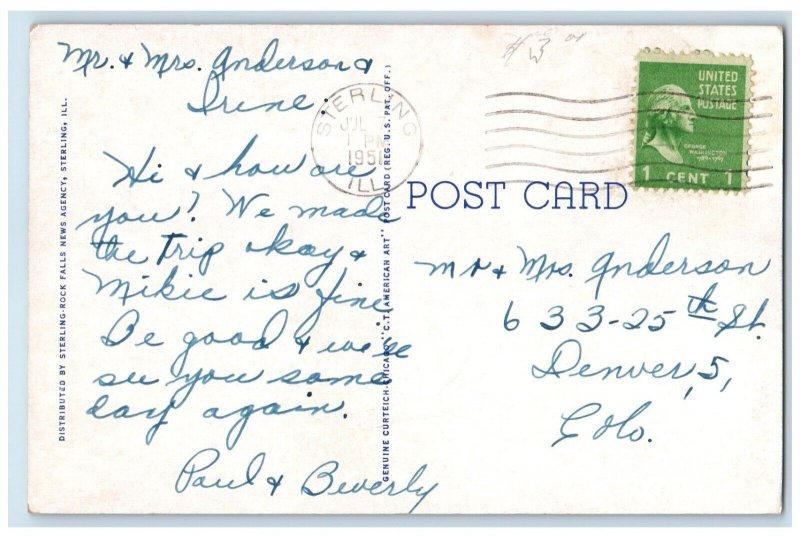 Mr. & Mrs. Anderson &
Irene.
Hi & how are
you? We made
the trip okay &
Mikie is fine
Be good & we'll
see you some
day again.
Paul & Beverly
DISTRIBUTED BY STERLING-ROCK FALLS NEWS AGENCY, STERLING, ILL.
GENUINE CURTEICH-CHICAGO "C.T. AMERICAN ART" POST CARD (REG. U.S. PAT. OFF.)
STERLING
JUL
PM
1951
ILL.
# 3
UNITED
STATES
POSTAGE
GEORGE
WASHINGTON
1789-1797
1 CENT 1
POST CARD
Mr & Mrs. Anderson
633-25th St.
Denver, 5,
Colo.